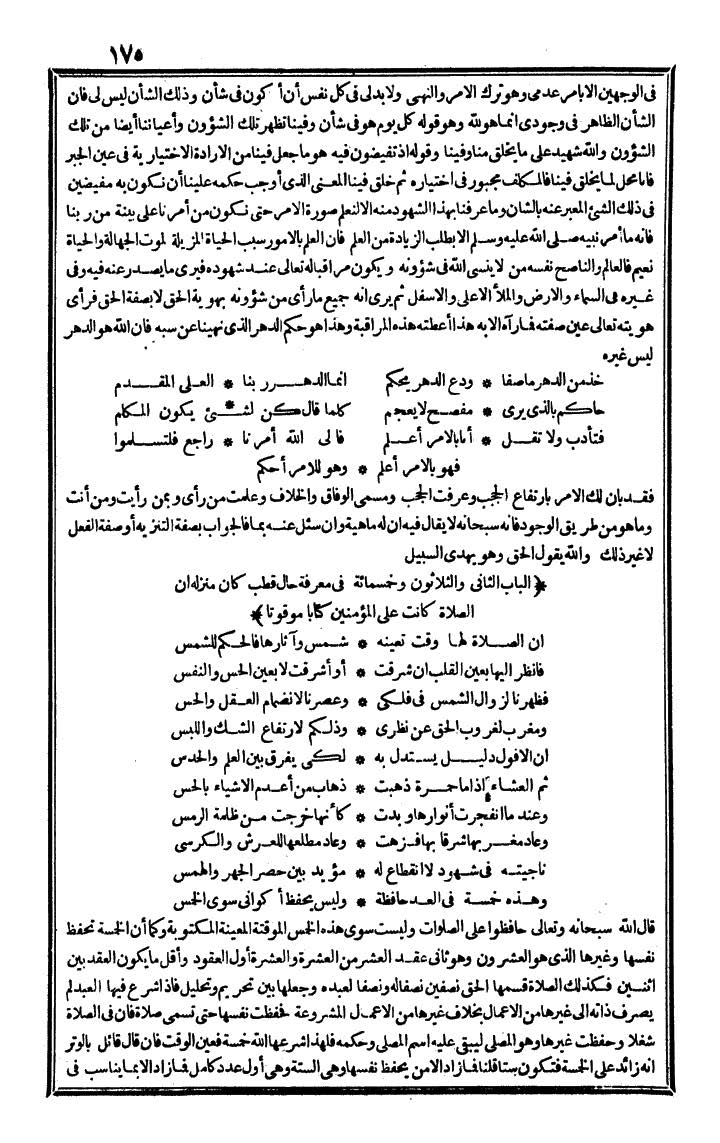 ١٧٥
فى الوجهين الا بامر عدمى وهو ترك الامر والنهى ولا بدلى فى كل نفس أن أكون فى شأن وذلك الشأن ليس لى فان
الشأن الظاهر فى وجودى انما هو لله وهو قوله كل يوم هو فى شأن وفينا تظهر تلك الشؤون وأعياننا أيضا من تلك
الشؤون والله شهيد على ما يخلق منا وفينا وقوله اذ تفيضون فيه هو ما جعل فينا من الارادة الاختيارية فى عين الجبر
فانا محل لما يخلق فينا فالمكلف مجبور فى اختياره ثم خلق فينا المعنى الذى أوجب حكمه علينا أن نكون به مفيضين
فى ذلك الشئ المعبر عنه بالشان وما عرفنا بهذا الشهود منه الا لنعلم صورة الامر حتى نكون من أمرنا على بينة من ربنا
فانه ما أمر نبيه صلى الله عليه وسلم الا بطلب الزيادة من العلم فان العلم بالامور سبب الحياة المزيلة لموت الجهالة والحياة
نعيم فالعالم والناصح نفسه من لا ينسى الله فى شؤونه ويكون مراقباله تعالى عند شهوده فيرى ما يصدر عنه فيه وفى
غيره فى السماء والارض والملأ الاعلى والاسفل ثم يرى انه جميع ما رأى من شؤونه بهوية الحق لا بصفة الحق فرأى
هويته تعالى عين صفته فما رآه الا به هذا أعطته هذه المراقبة وهذا هو حكم الدهر الذى نهينا عن سبه فان الله هو الدهر
ليس غيره
خذ من الدهر ما صفا * ودع الدهر يحكم انما الدهر ربنا * العلى المقدم
حاكم بالذى يرى * مفصح لا يعجم كلما قال كن لشئ * يكون المكلم
فتأدب ولا تقل * أنا بالامر أعلم فالى الله أمرنا * راجع فلتسلموا
فهو بالامر أعلم * وهو للامر أحكم
فقد بان لك الامر بارتفاع الحجب وعرفت الحجب ومسمى الوفاق والخلاف وعلمت من رأى وبمن رأيت ومن أنت
وما هو من طريق الوجود فانه سبحانه لا يقال فيه ان له ماهية وان سئل عنه بما فالجواب بصفة التنزيه أو صفة الفعل
لا غير ذلك والله يقول الحق وهو يهدى السبيل
﴿الباب الثانى والثلاثون وخمسمائة فى معرفة حال قطب كان منزله ان
الصلاة كانت على المؤمنين كتابا موقوتا﴾
ان الصلاة لها وقت تعينه * شمس وآثارها فالحكم للشمس
فانظر اليها بعين القلب ان شرقت * أو أشرقت لا بعين الحس والنفس
فظهرنا لزوال الشمس فى فلكى * وعصرنا لانضمام العقل والحس
ومغرب لغروب الحق عن نظرى * وذلكم لارتفاع الشك واللبس
ان الافول دليل يستدل به * لكى يفرق بين العلم والحدس
ثم العشاء اذا ما حمرة ذهبت * ذهاب من أعدم الاشياء بالحس
وعند ما انفجرت أنوارها وبدت * كأنها خرجت من ظلمة الرمس
وعاد مغربها شرقا بها فزهت * وعاد مطلعها للعرش والكرسى
ناجيته فى شهود لا انقطاع له * مؤيد بين حصر الجهر والهمس
وهذه خمسة فى العد حافظة * وليس يحفظ أكوانى سوى الخمس
قال الله سبحانه وتعالى حافظوا على الصلوات وليست سوى هذه الخمس الموقتة المعينة المكتوبة وكما أن الخمسة تحفظ
نفسها وغيرها الذى هو العشرون وهو ثانى عقد العشر من العشرة والعشرة أول العقود وأقل ما يكون العقد بين
اثنين فكذلك الصلاة قسمها الحق نصفين نصفا له ونصفا لعبده وجعلها بين تحريم وتحليل فاذا شرع فيها العبد لم
يصرف ذاته الى غيرها من الاعمال بخلاف غيرها من الاعمال المشروعة فحفظت نفسها حتى تسمى صلاة فان فى الصلاة
شغلا وحفظت غيرها وهو المصلى ليبقى عليه اسم المصلى وحكمه فلهذا شرعها الله خمسة فعين الوقت فان قال قائل بالوتر
انه زائد على الخمسة فتكون ستا قلنا فما زاد الا من يحفظ نفسها وهى الستة وهى أول عدد كامل فما زاد الا بما يناسب فى